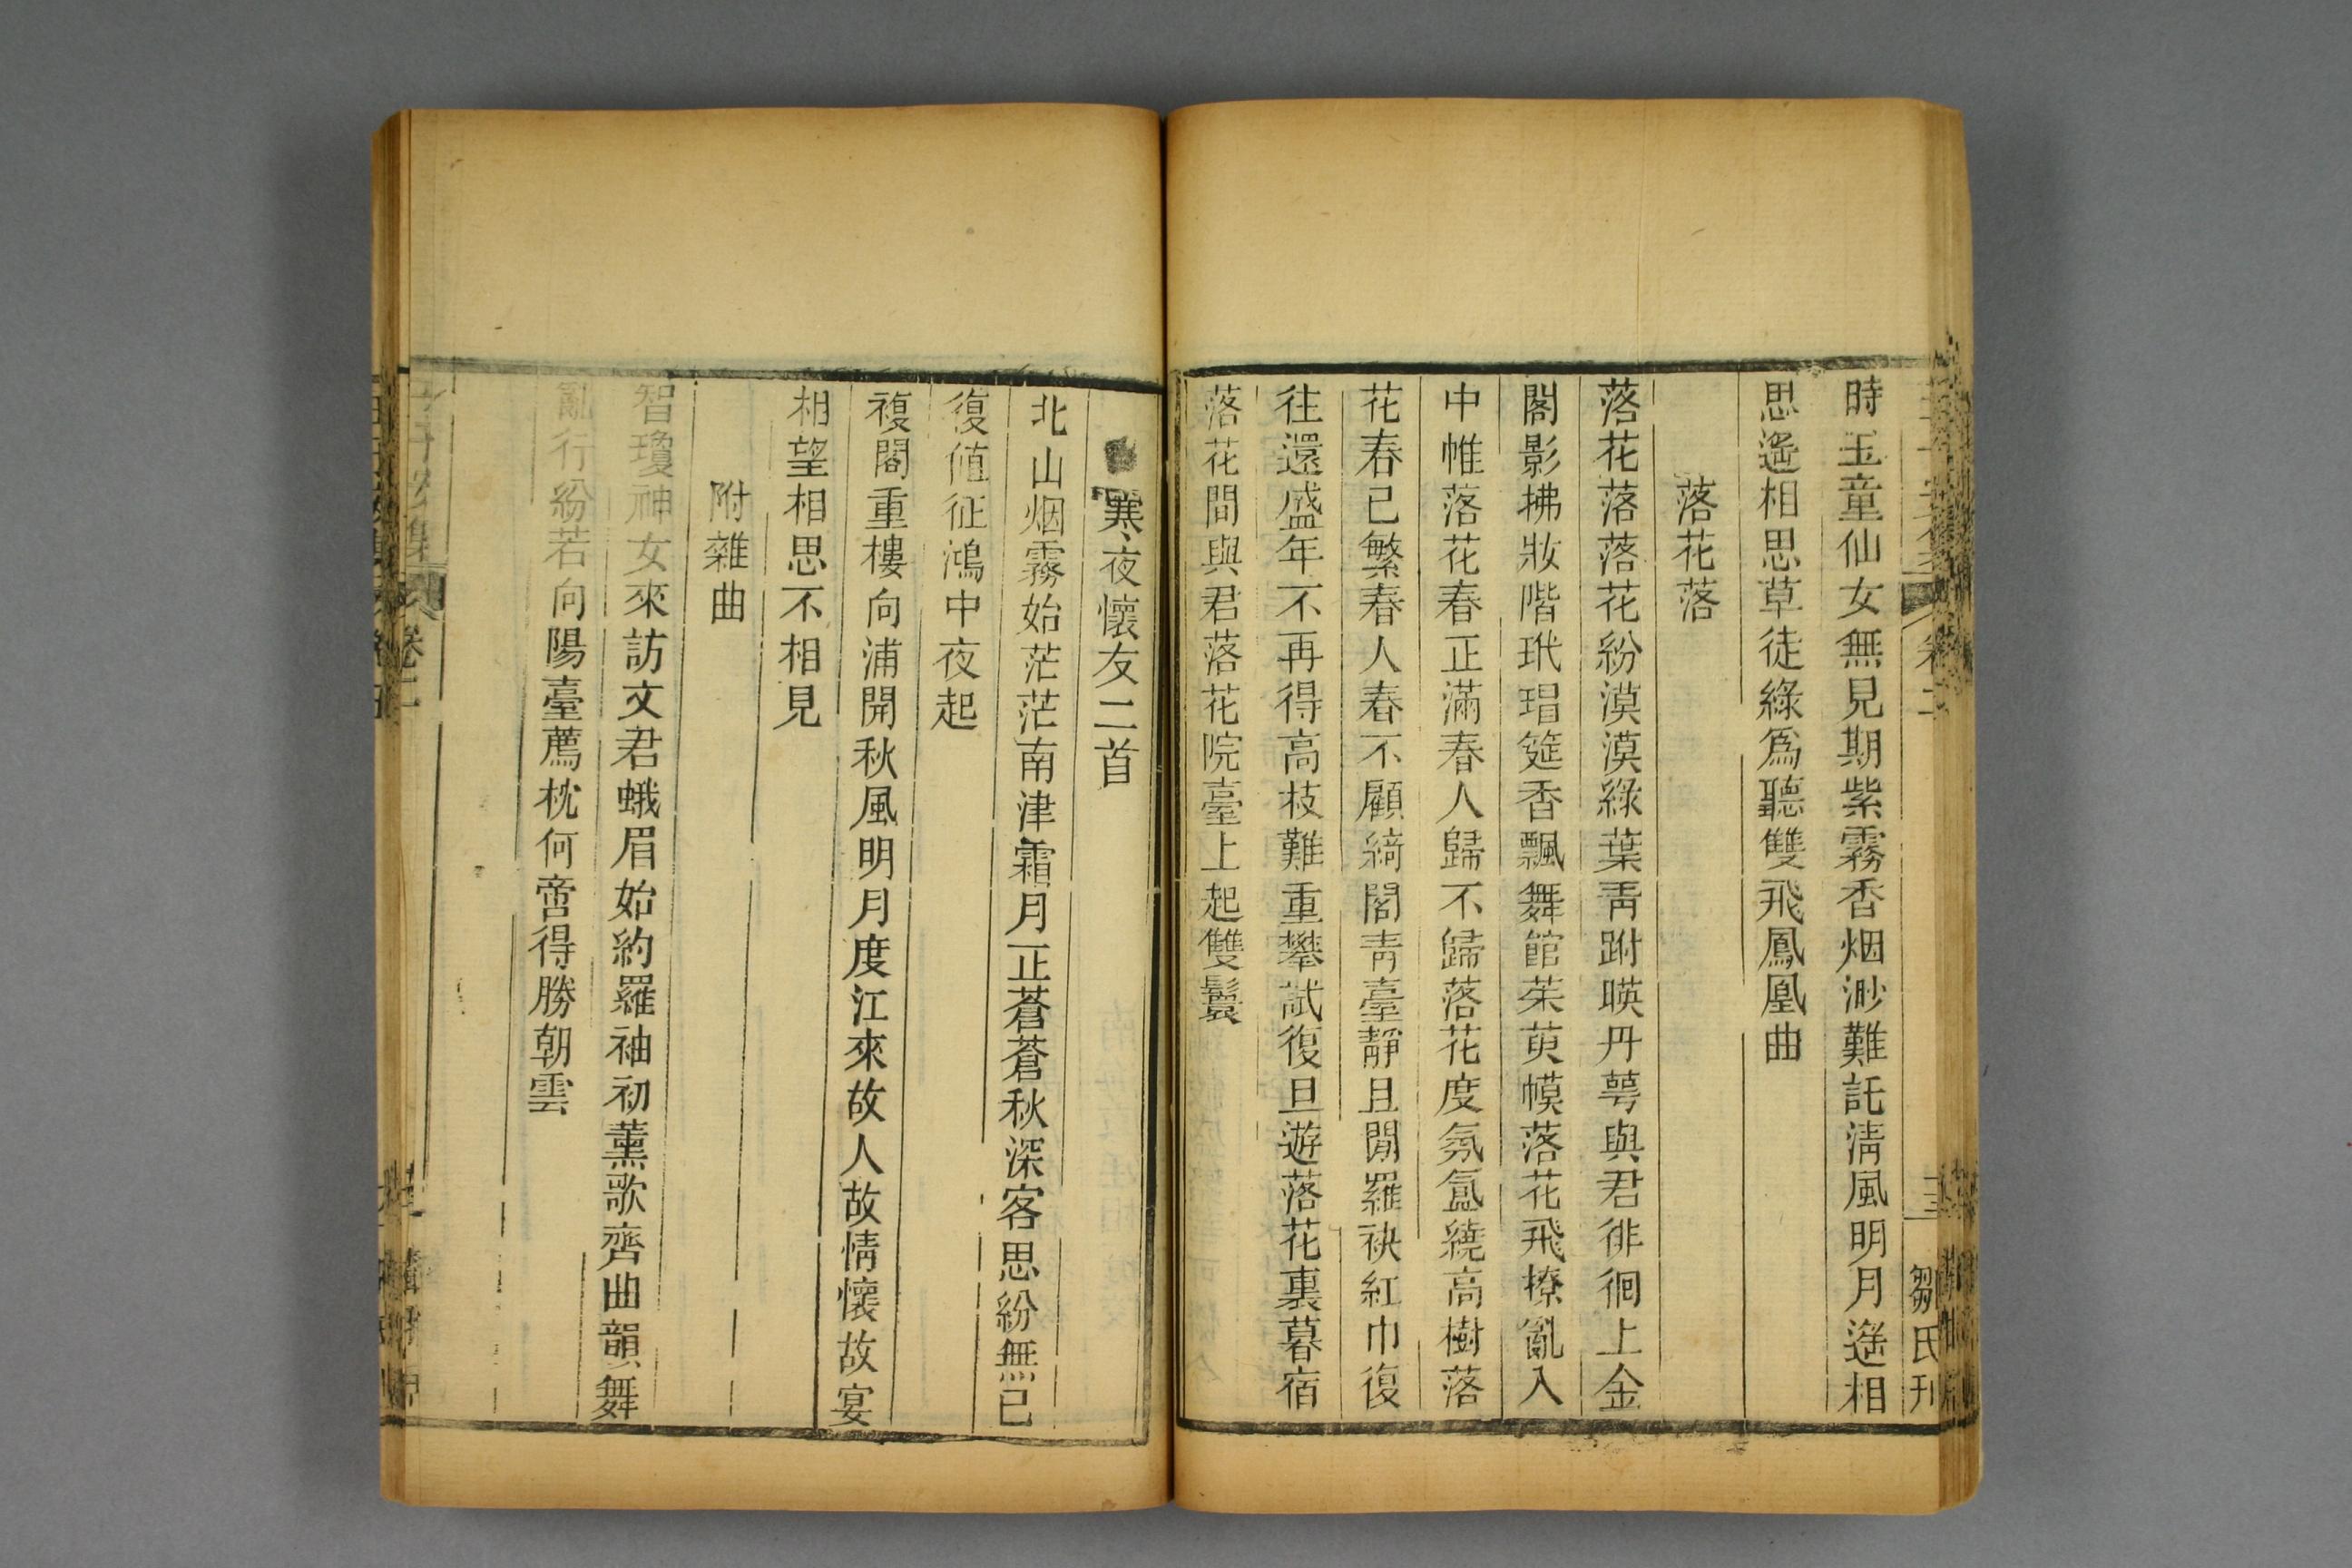 時玉童仙女無見期紫霧香烟渺難託淸風明月遥相
思遥相思草徒綠爲聽雙飛鳳凰曲
落花落
落花落落花紛漠漠綠葉靑跗暎丹萼與君徘徊上金
閣影拂妝階玳瑁筵香飄舞館茱萸幙落花飛撩亂入
中帷落花春正滿春人歸不歸落花度氛氳繞高樹落
花春已繁春人春不顧綺閣靑臺靜且閒羅袂紅巾復
往還盛年不再得高枝難重攀試復旦遊落花裏暮宿
落花間與君落花院臺上起雙鬟
卷二
十三
鄒氏刊
寒夜懷友二首
北山烟霧始茫茫南津霜月正蒼蒼秋深客思紛無已
復値征鴻中夜起
複閣重樓向浦開秋風明月度江來故人故情懷故宴
相望相思不相見
附雜曲
智瓊神女來訪文君蛾眉始約羅袖初薰歌齊曲韻舞
亂行紛若向陽臺薦枕何啻得勝朝雲
卷二